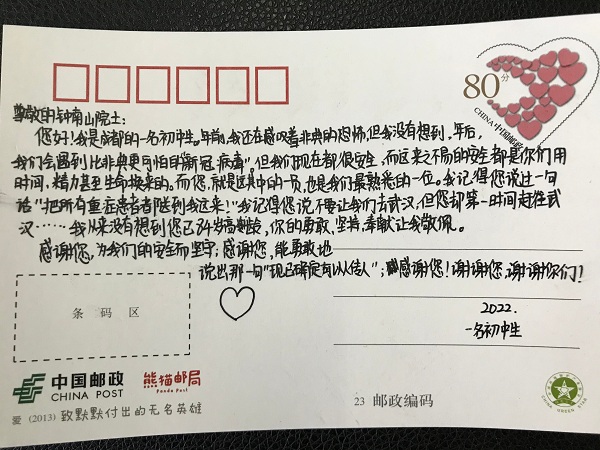 80分
CHINA 中国邮政
尊敬的钟南山院士:
您好!我是成都的一名初中生。年前,我还在感叹着非典的恐怖,但我没有想到,年后,
我们会遇到比非典更可怕的“新冠病毒”,但我们现在都很安全,而这来之不易的安全都是你们用
时间、精力甚至生命换来的。而您,就是这其中的一员,也是我们最熟悉的一位。我记得您说过一句
话“把所有重症患者都送到我这来!”我记得您说不要让我们去武汉,但您却第一时间赶往武
汉……我从来没有想到您已84岁高龄,你的勇敢,坚持,奉献让我敬佩。
感谢您,为我们的安全而坚守;感谢您,能勇敢地
说出那一句“现已确定可以人传人”;感谢您!谢谢您,谢谢你们!
2022.
一名初中生
条码区
中国邮政
CHINA POST
熊猫邮局
Panda Post
爱 (2013) 致默默付出的无名英雄
23 邮政编码
CHINA GREEN STAR